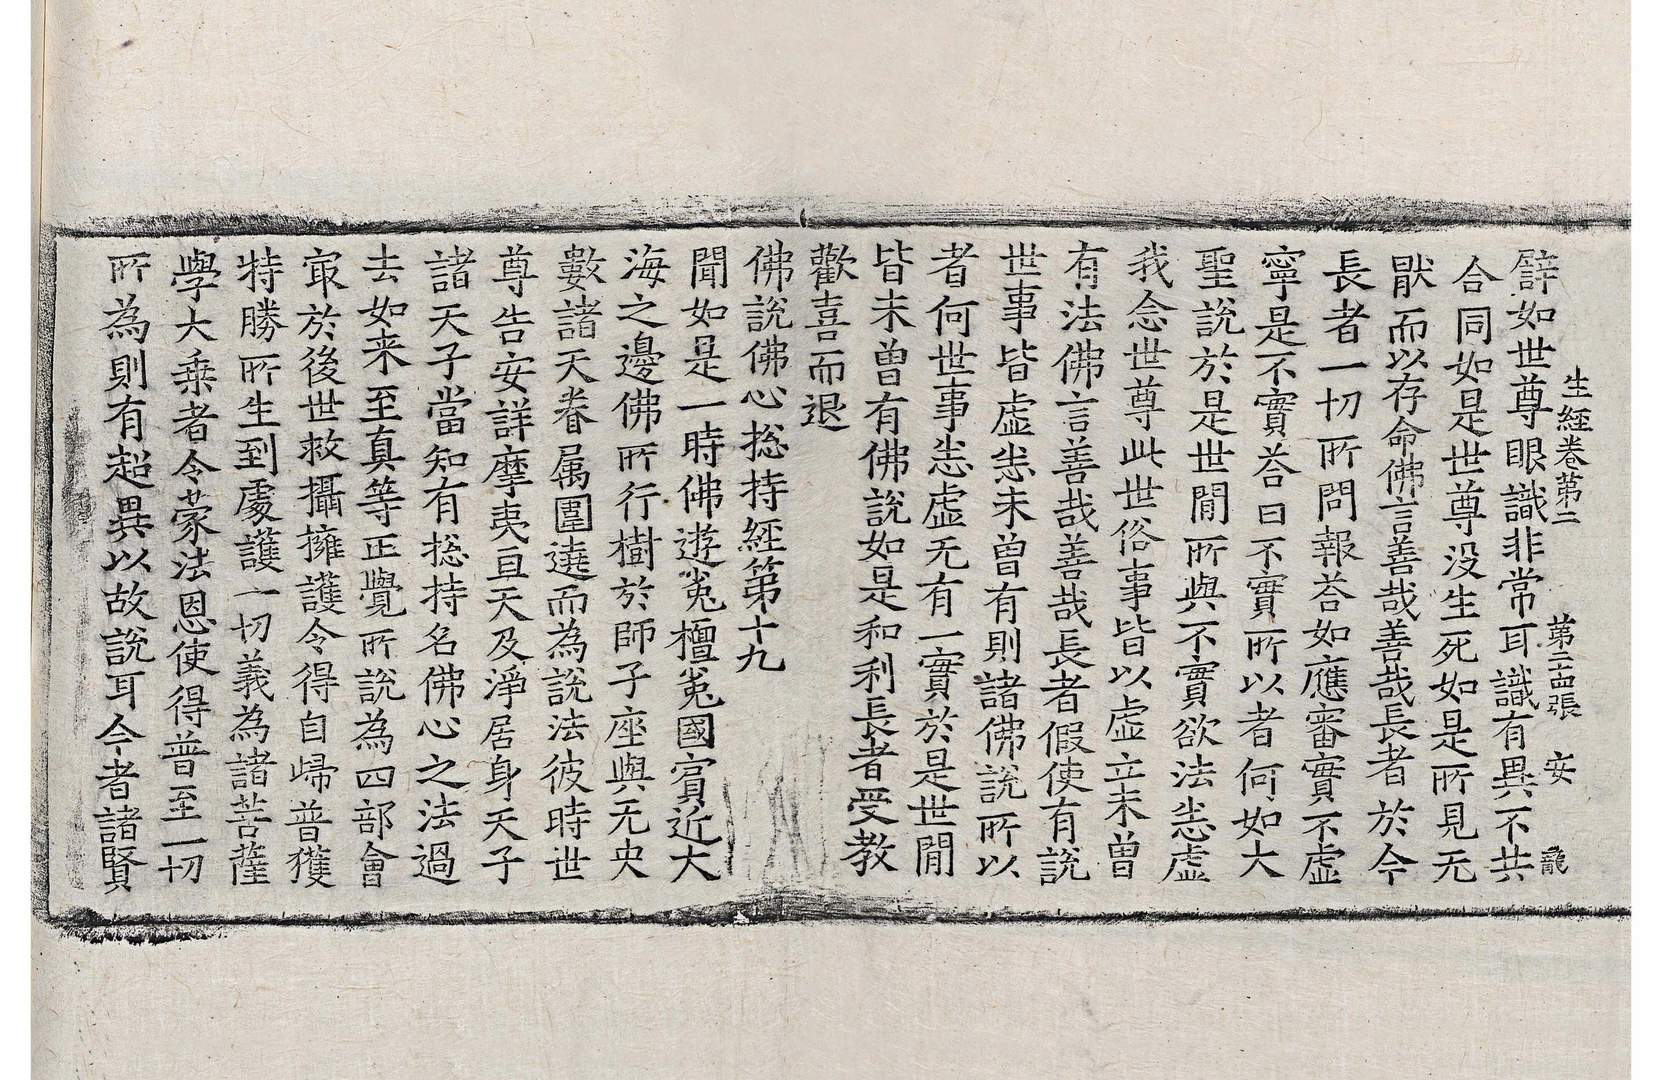 生經卷第二 第二十五張 安 龍
譬如世尊眼識非常耳識有異不共
合同如是世尊没生死如是所見无
猒而以存命佛言善哉善哉長者於今
長者一切所問報荅如應審實不虛
寧是不實荅曰不實所以者何如大
聖說於是世閒所與不實欲法恙虛
我念世尊此世俗事皆以虛立未曾
有法佛言善哉善哉長者假使有說
世事皆虛恙未曾有則諸佛說所以
者何世事恙虛无有一實於是世閒
皆未曾有佛說如是和利長者受教
歡喜而退
佛說佛心捴持經第十九
聞如是一時佛遊冤檀冤國賓近大
海之邊佛所行樹於師子座與无央
數諸天眷属圍遶而為說法彼時世
尊告安詳摩夷亘天及淨居身天子
諸天子當知有捴持名佛心之法過
去如来至真等正覺所說為四部會
冣於後世救攝擁護令得自歸普獲
特勝所生到處護一切義為諸菩薩
學大乗者令蒙法恩使得普至一切
所為則有超異以故說耳今者諸賢